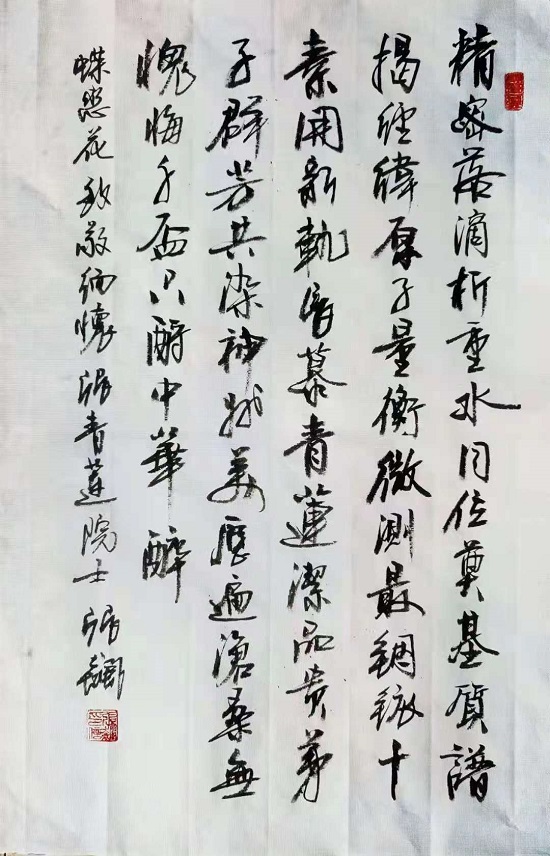 精密落滴析重水同位奠基质譜
揭經緯原子量衡微測最銦銥十
素開新軌慕青蓮潔品貴弟
子群芳共染神州美歷遍滄桑無
愧悔千盃只酹中華醉
蝶恋花致敬缅懷張青蓮院士 張